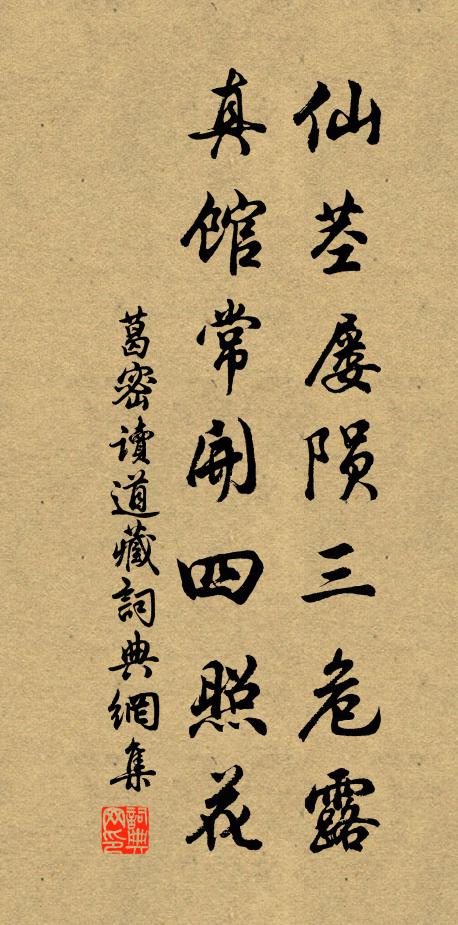 仙茎屡陨三危露
真馆常開四照花
葛密讀道藏詞典網集
詞典网印